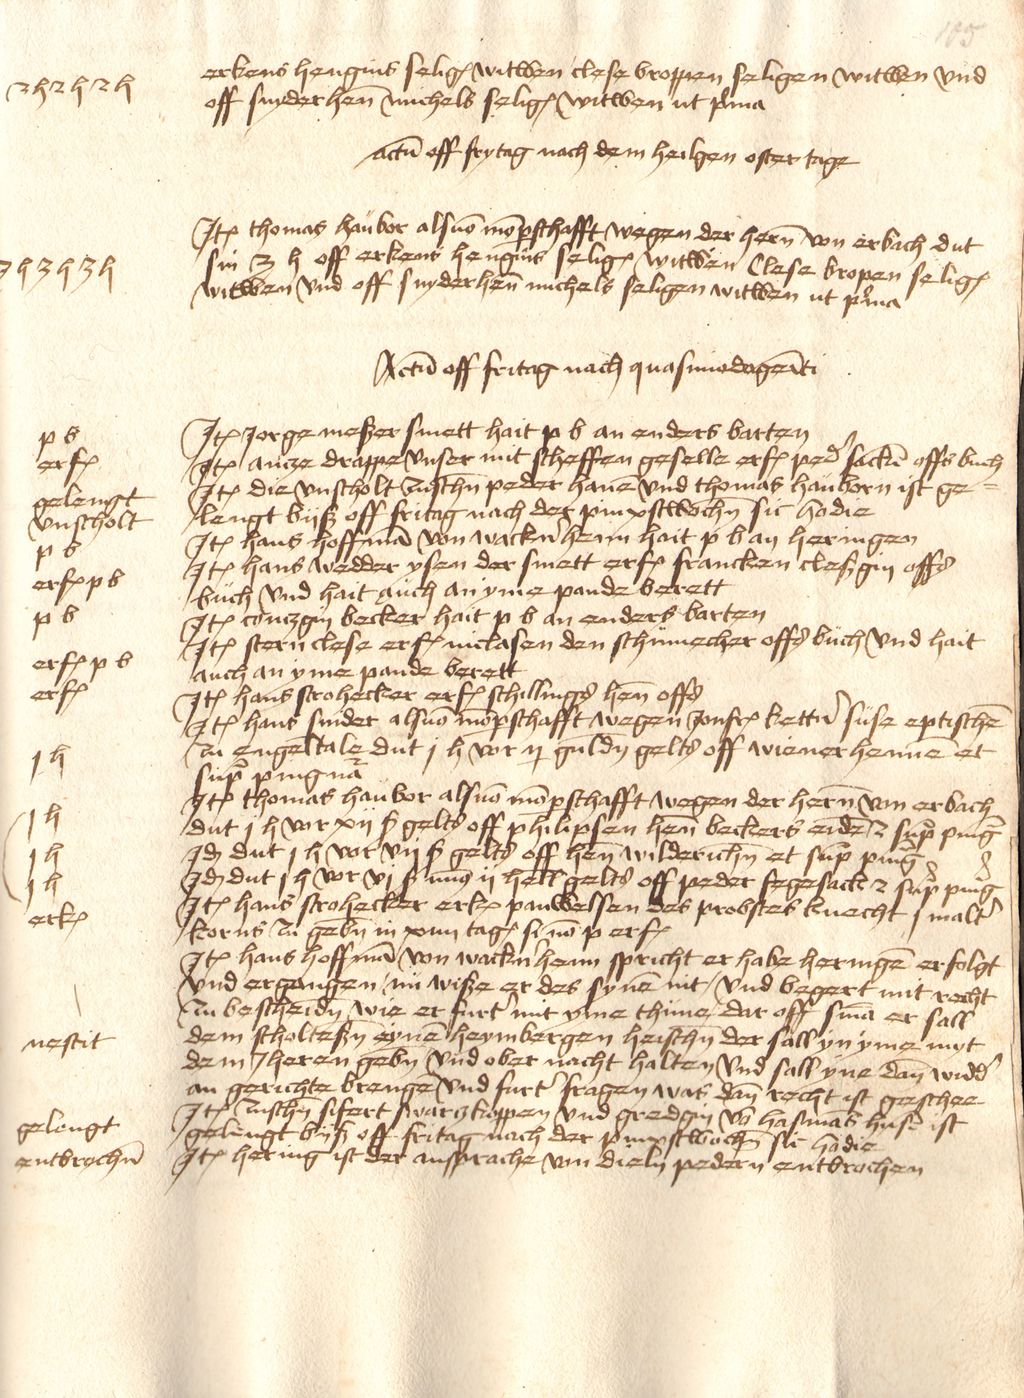 105
2 h 2 h 2 h
erkens hengins selig witwen clese broppen seligen witwen und
off snyderhen michels selig witwen ut prima
actu off frytag nach dem heilgen oster tage
3 h 3 h 3 h
Ite thomas haubor als mompschafft wegen der hern von erbach dut
sin 3 h off erkens hengins selig witwen Clese bropen selig
witwen und off snyderhen michels seligen witwen ut prima
Actu off fritag nach quasimodogeniti
p b
Ite Jorge meszer smett hait p b an enders barten
erf
Ite antze drappe unser mit scheffen geselle erf peder off buch
gelengt
Ite die unscholt zuschn peder hane und thomas hauborn ist ge=
unscholt
lengt bysz off fritag nach der pinxstwochn sic hodie
p b
Ite hans hoffman von wackernheim hait p b an heringen
erf p b
Ite hans wedder ysen der smett erf francken cleszgin offs
buch und hait auch an yme pande berett
p b
Ite contzgin becker hait p b an enders barten
erf p b
Ite stern clese erf niclasen den schumecher offs buch und hait
auch an yme pande berett
erf
Ite hans strohecker erf schillings hen offs
Ite hans snider als mompschafft wegen Jonfr süse eptischen
1 h
zu engeltale dut j h vor ij guldn gelts off wiener henne et
sup pingn
Ite thomas haubor als mompschafft wegen der hern von erbach
1 h
dut j h vor xij ß gelts off philipsen hen beckers eiden sup ping
1 h
Id dut j h vor vij ß gelts off hen wilderichn et sup ping
1 h
Id dut j h vor vj ß ij hell gelts off peder fegesack sup ping
erk
Ite hans strohecker erk pauwelsen des probstes knecht j malt
korns zu gebn in xiiij tag si no p erf
Ite hans hoffman von wackernheim spricht er habe heringen erfolgt
und ergangen nu wisze er des synen nit und begert mit recht
zu bescheidn wie er furt mit yme thune dar off er sall
nestit
dem scholteszn eynen heymbergen heischn der sall yn yme mit
dem heren gebn und ober nacht halten und sall yne dan widd
an gerichte brenge und furt fragen was dan recht ist geschee
gelengt
Ite zuschn sifert swarzkoppen und gredgin ist
gelengt bysz off fritag nach der pinxstwochn sic hodie
entbrochn
Ite hering ist der ansprache von pedern entbrochen